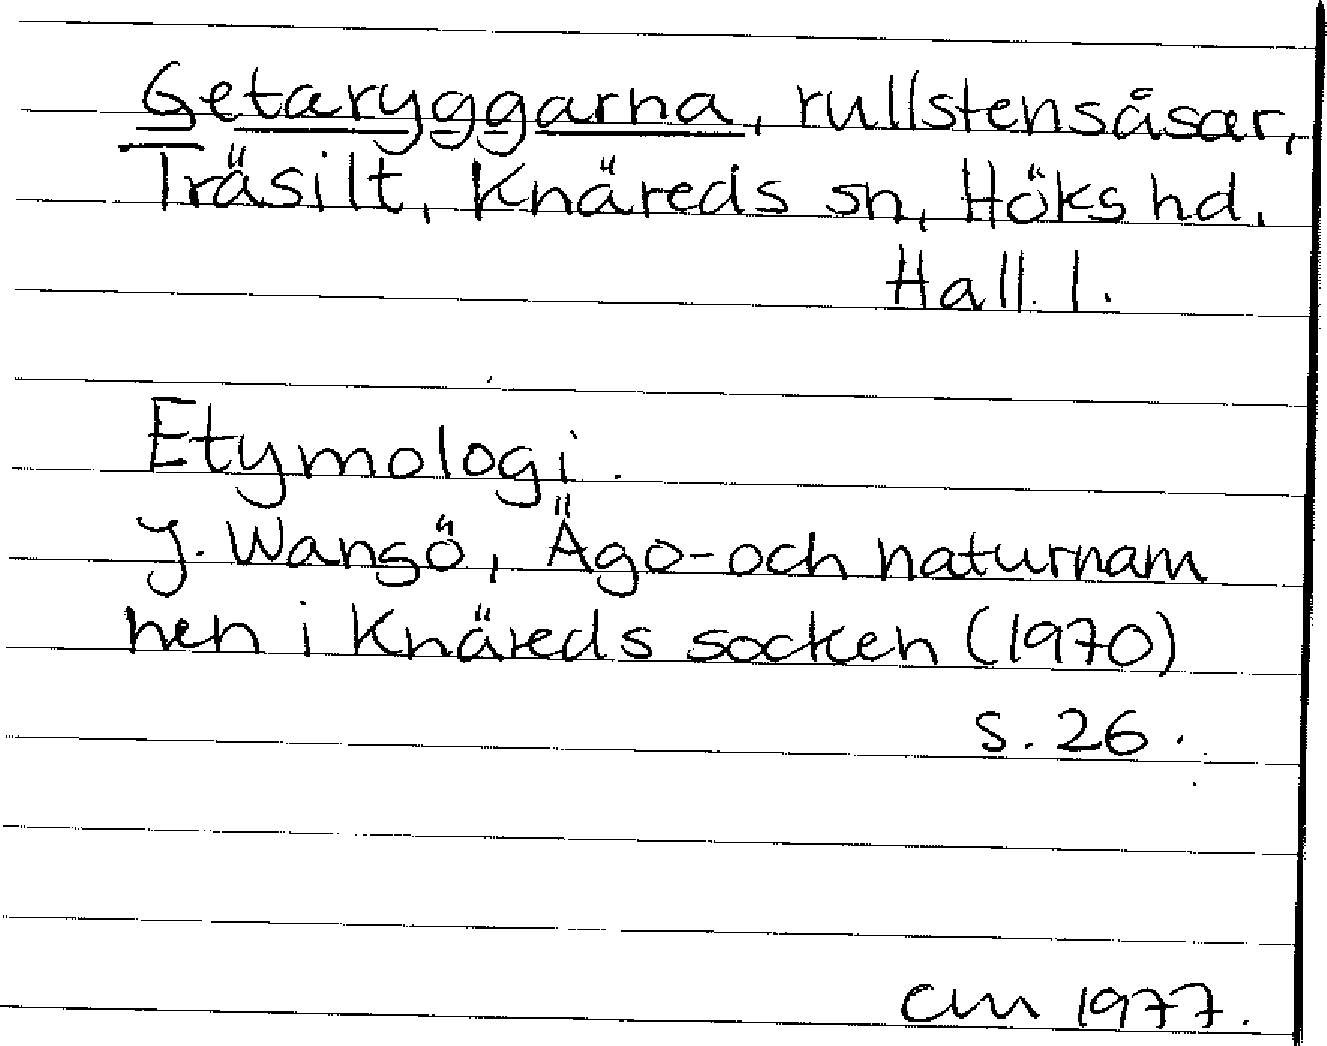 Getaryggarna, rullstensåsar,
Träsilt, Knäreds sn, Höks hd.
Hall. l.
Etymologi.
J. Wangö, Ägo- och naturnam
nen i Knäreds socken (1970)
s. 26.
CM 1977.